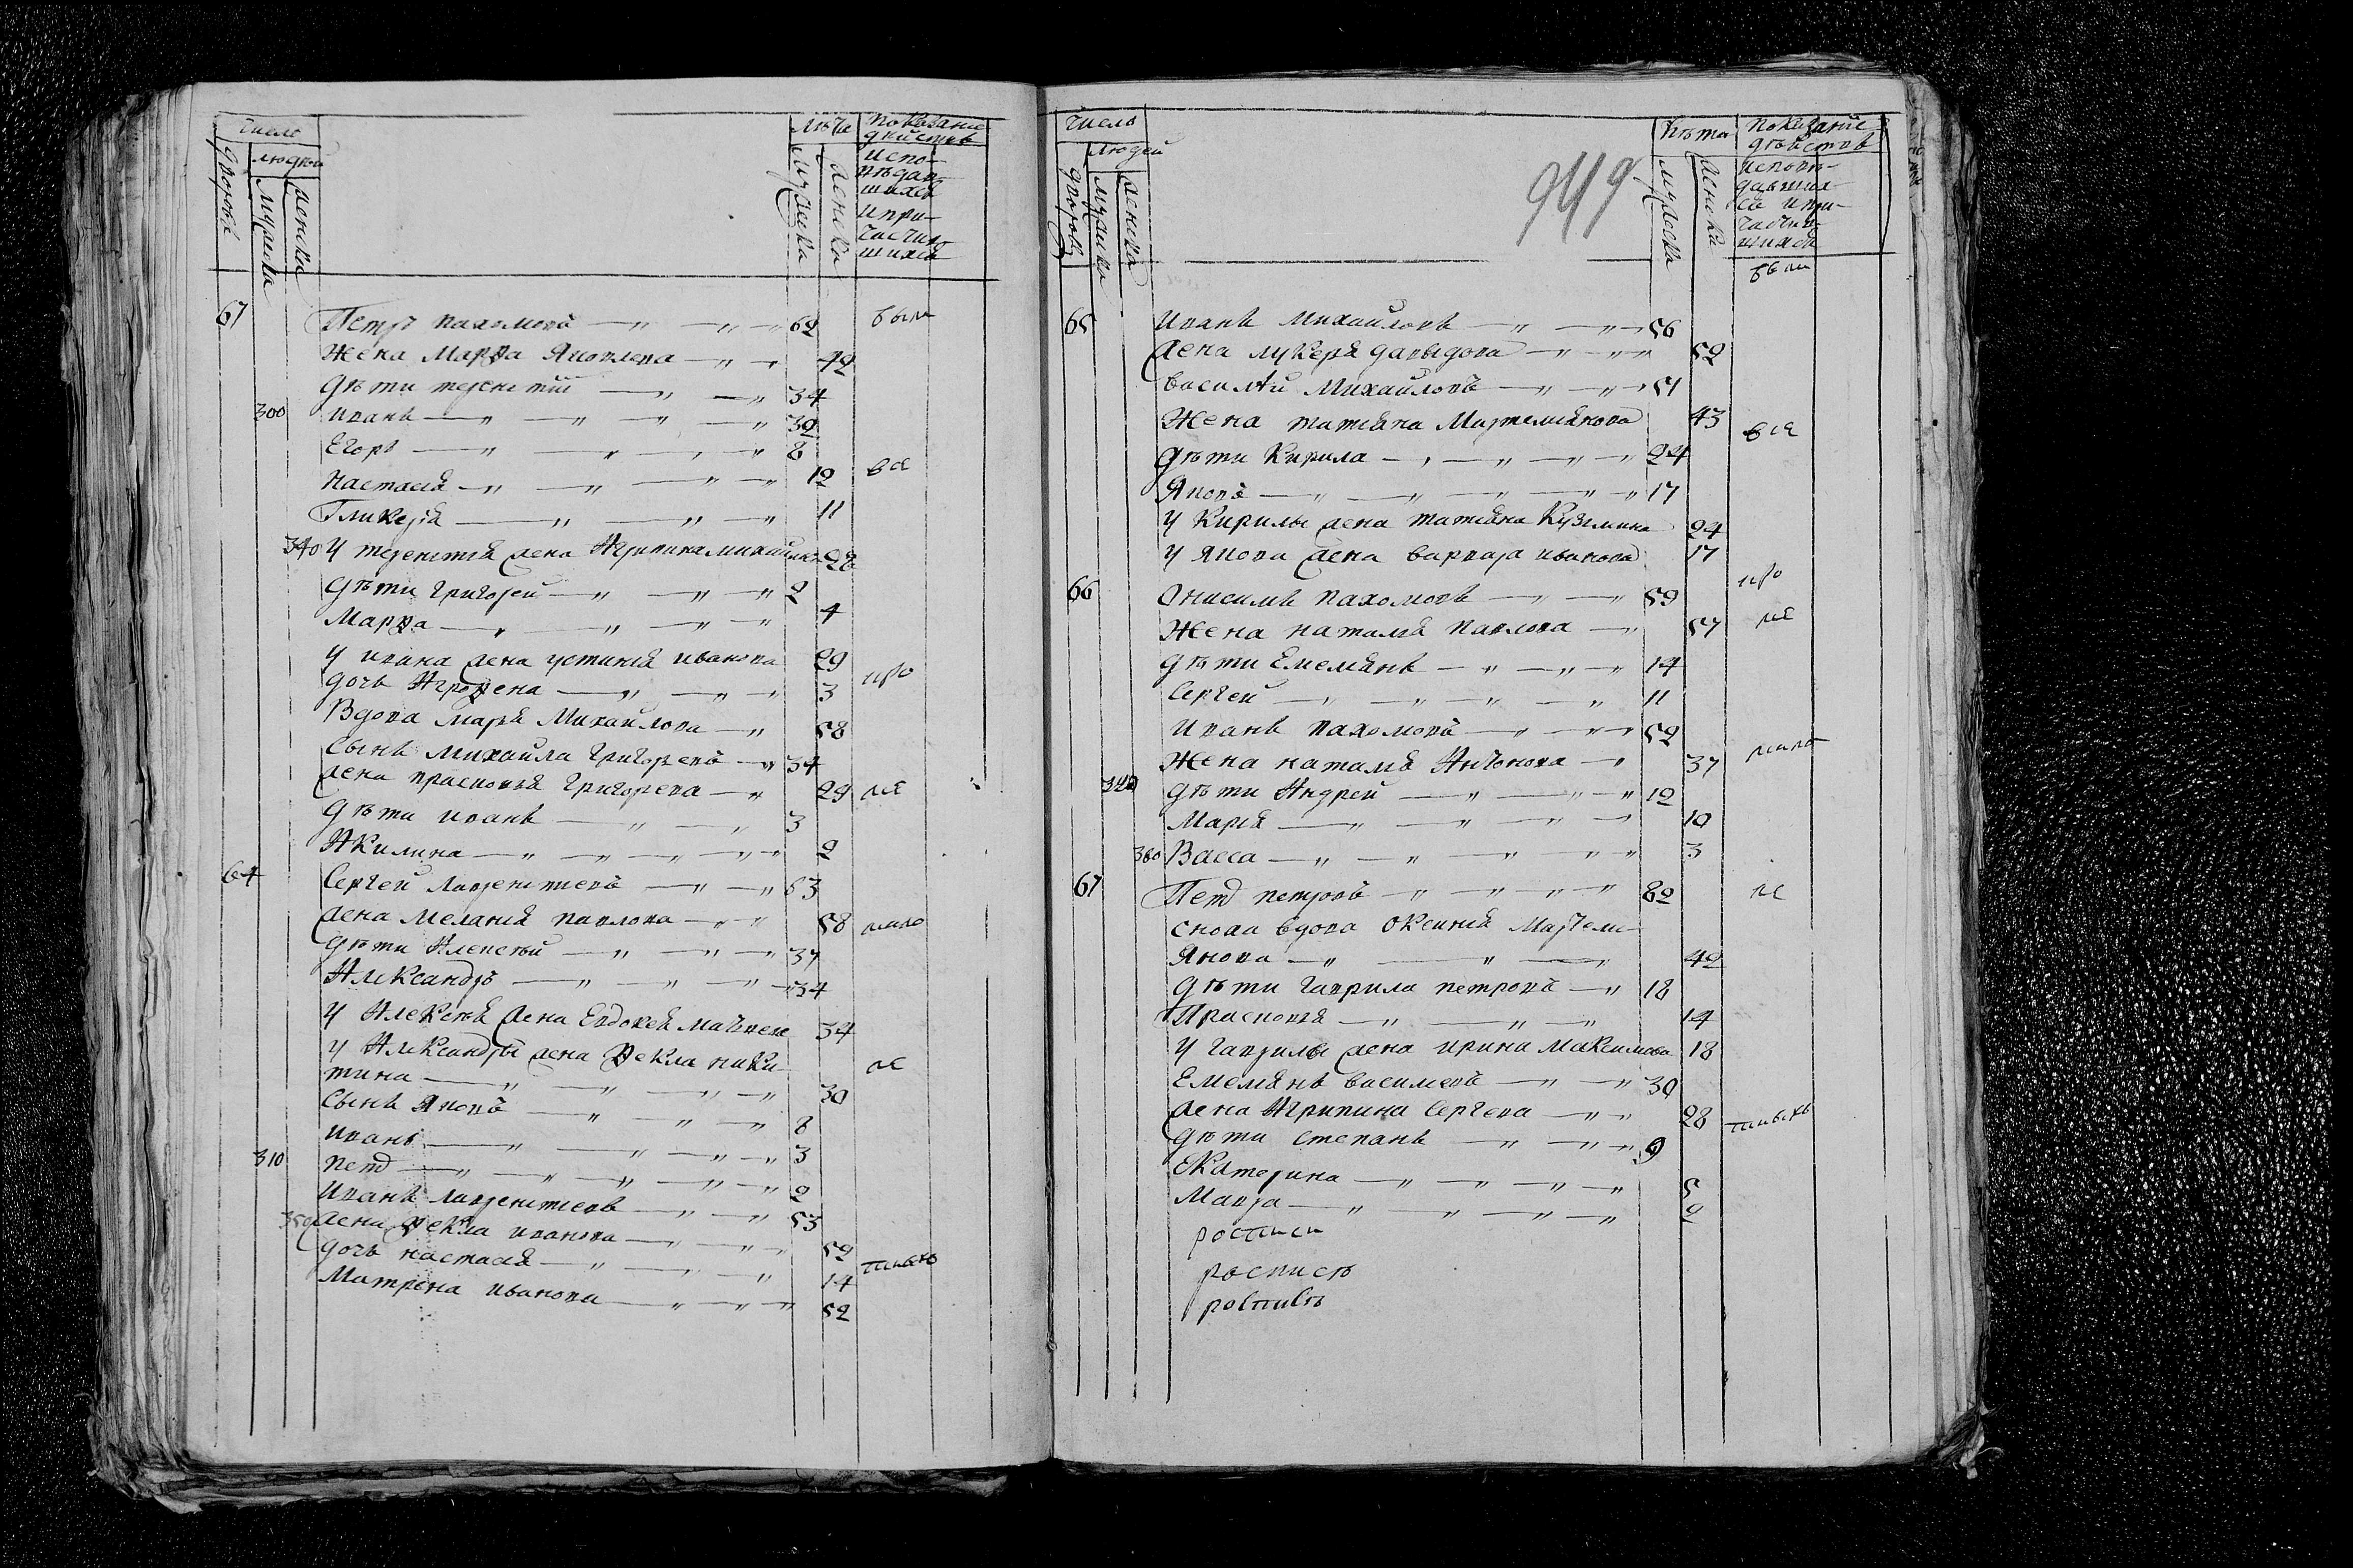 Число
Людей
Дворовъ
Мужеска
Женска
Лета
Мужеска
Женска
Показание
действъ
испо-
ведав-
шихся
и при-
частив-
шихся
61 Петръ Пахомовъ —〃 —〃 62 были
Жена Марфа Яковлева —〃 — 42
дѣти терентіи —〃 —〃 34
300 Иванъ —〃 —〃 —〃 —〃 32
Егоръ —〃 —〃 —〃 —〃 8
Настасія —〃 —〃 —〃 —〃 12 вся
Гликерія —〃 —〃 —〃 11
340 У терентія жена Агрипина михаилова 28
дѣти Григорей —〃 —〃 —〃 2
Марфа —〃 —〃 —〃 —〃 4
У ивана жена устинія иванова 29
дочь Агрофена —〃 —〃 —〃 3 иро
Вдова марья Михаилова —〃 58
Сынъ михаила Григоревъ —〃 34
жена прасковья Григорева —〃 29 ля
дѣти иванъ —〃 —〃 3
Акилина —〃 —〃 —〃 —〃 2
64 Сергеи лаврентиевъ —〃 —〃 63
жена меланія павлова —〃 〃 58
дѣти Алексѣй —〃 —〃 —〃 37
Александръ —〃 —〃 —〃 34
У Алексѣя жена Евдокея матвеев 34
У Александры жена Фекла ники-
тина —〃 —〃 —〃 —〃 30
Сынъ Яковъ —〃 —〃 —〃 8
Иванъ —〃 —〃 —〃 —〃 3
310 Петръ —〃 —〃 —〃 —〃 —〃 2
Иванъ лаврентиевъ —〃 —〃 53
350 жена Фекла иванова —〃 —〃 52
дочь настасія —〃 —〃 —〃 14
Матрена иванова —〃 —〃 —〃 52
Число
Людей
Дворовъ
Мужеска
Женска
949
Лѣта
Мужеска
Женска
Показаніе
дѣйствъ
исповѣ-
давших-
ся и при-
частив-
шихся
были
65 Иванъ Михаиловъ —〃 —〃 56
жена лукеря давыдова —〃 —〃 52
василѣи Михайловъ —〃 —〃 51
Жена татияна Мартемиянова 43 вся
дѣти Кирила —〃 —〃 —〃 —〃 24
Яковъ —〃 —〃 —〃 —〃 —〃 17
У Кирилы жена татияна Кузмина 24
У якова жена варвара иванова 17
иро
66 Онисимъ Пахомовъ —〃 —〃 59
Жена наталія павлова —〃 57 ля
дѣти Емелиянъ —〃 —〃 —〃 14
Сергеи —〃 —〃 —〃 —〃 11
Иванъ Пахомовъ —〃 —〃 52
Жена наталія Антонова —〃 37
320 дѣти Андрей —〃 —〃 —〃 12
Марія —〃 —〃 —〃 —〃 10
360 Васса —〃 —〃 —〃 —〃 —〃 3
67 Петръ петровъ —〃 —〃 〃 —〃 82
сноха вдова Оксиния Мартеми-
янова —〃 —〃 — 42
дѣти гаврила петровъ —〃 18
Прасковья —〃 —〃 —〃 14
У гаврилы жена ирина Максимова 18
Емелиянъ василиевъ —〃 —〃 30
жена Агрипина Сергева —〃 〃 28
дѣти степанъ —〃 —〃 9
Екатерина —〃 —〃 —〃 —〃 5
Мавра —〃 —〃 —〃 —〃 2
росписи
роспись
роспись